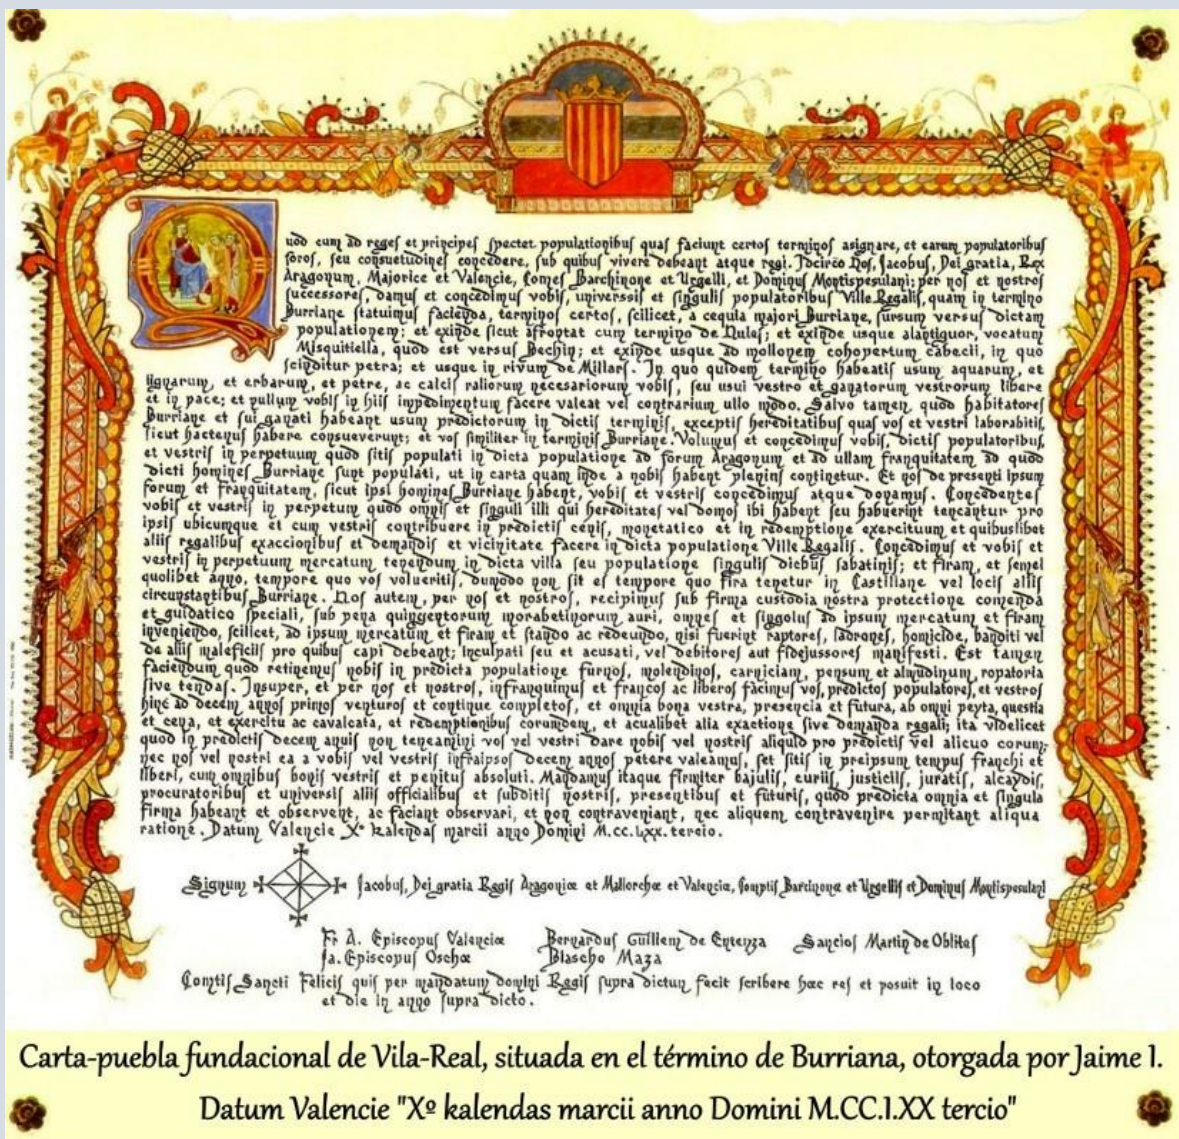 Quod cum ad reges et principes spectet populationibus quas faciunt certos terminos asignare, et earum populatoribus
foros, seu consuetudines concedere, sub quibus vivere debeant atque regi. Idcirco Nos, Jacobus, Dei gratia, Rex
Aragonum, Majorice et Valencie, Comes Barchinone et Urgelli, et Dominus Montispesulani; per nos et nostros
successores, damus et concedimus vobis, universsis et singulis populatoribus Ville Regalis, quam in termino
Burriane statuimus facienda, terminos certos, scilicet, a cequia majori Burriane, sursum versus dictam
populationem; et exinde sicut afrontat cum termino de Nules; et exinde usque alantiguor, vocatum
Misquitiella, quod est versus Bechin; et exinde usque ad mollonem cohopertum cabecii, in quo
scinditur petra; et usque in rivum de Millars. In quo quidem termino habeatis usum aquarum, et
lignarum, et erbarum, et petre, ac calcis raliorum necesariorum vobis, seu usui vestro et ganatorum vestrorum libere
et in pace; et nullum vobis in hiis impedimentum facere valeat vel contrarium ullo modo. Salvo tamen, quod habitatores
Burriane et sui ganati habeant usum predictorum in dictis terminis, exceptis hereditatibus quas vos et vestri laborabitis,
sicut hactenus habere consueverunt; et vos similiter in terminis Burriane. Volumus et concedimus vobis, dictis populatoribus,
et vestris in perpetuum quod sitis populati in dicta populatione ad forum Aragonum et ad ullam franquitatem ad quod
dicti homines Burriane sunt populati, ut in carta quam inde a nobis habent plenius continetur. Et nos de presenti ipsum
forum et franquitatem, sicut ipsi homines Burriane habent, vobis et vestris concedimus atque donamus. Concedentes
vobis et vestris in perpetum quod omnis et singuli illi qui hereditates vel domos ibi habent seu habuerint teneantur pro
ipsis ubicumque et cum vestris contribuere in predictis cenis, monetatico et in redemptione exercituum et quibuslibet
aliis regalibus exaccionibus et demandis et vicinitate facere in dicta populatione Ville Regalis. Concedimus et vobis et
vestris in perpetuum mercatum tenendum in dicta villa seu populatione singulis diebus sabatinis; et firam, et semel
quolibet anno, tempore quo vos volueritis, dumodo non sit es tempore quo fira tenetur in Castillane vel locis aliis
circunstantibus Burriane. Nos autem, per nos et nostros, recipimus sub firma custodia nostra protectione comenda
et guidatico speciali, sub pena quingentorum morabetinorum auri, omnes et singolus ad ipsum mercatum et firam
inveniendo, scilicet, ad ipsum mercatum et firam et stando ac redeundo, nisi fuerint raptores, ladrones, homicide, banditi vel
de aliis maleficiis pro quibus capi debeant; inculpati seu et acusati, vel debitores aut fidejussores manifesti. Est tamen
faciendum quod retinemus nobis in predicta populatione furnos, molendinos, carniciam, pensum et almudinum, ropatoria
sive tendas. Insuper, et per nos et nostros, infranquimus et francos ac liberos facimus vos, predictos populatores, et vestros
hinc ad decem annos primos venturos et continue completos, et omnia bona vestra, presencia et futura, ab omni peyta, questia
et cena, et exercitu ac cavalcata, et redemptionibus corundem, et acualibet alia exactione sive demanda regali; ita videlicet
quod in predictis decem annis non teneamini vos vel vestri dare nobis vel nostris aliquid pro predictis vel alicuo corum;
nec nos vel nostri ea a vobis vel vestris infraipsos decem annos petere valeamus, set sitis in preipsum tempus franchi et
liberi, cum omnibus bonis vestris et penitus absoluti. Mandamus itaque firmiter bajulis, curiis, justiciis, juratis, alcaydis,
procuratoribus et universis aliis officialibus et subditis nostris, presentibus et futuris, quod predicta omnia et singula
firma habeant et observent, ac faciant observari, et non contraveniant, nec aliquem contravenire permitant aliqua
ratione. Datum Valencie Xº kalendas marcii anno Domini M.CC.LXX. tercio.
Signum Jacobus, Dei gratia Regis Aragoniæ et Mallorchæ et Valenciæ, Comptis Barcinonæ et Urgellis et Dominus Montispesulani
Fr A. Episcopus Valenciæ Bernardus Guillem de Entenza Sancios Martin de Oblites
Ja. Episcopus Oschæ Blascho Maza
Comtis Sancti Felicis quis per mandatum domini Regis supra dictun fecit scribere hæc res et posuit in loco
et die in anno supra dicto.
Carta-puebla fundacional de Vila-Real, situada en el término de Burriana, otorgada por Jaime I.
Datum Valencie "Xº kalendas marcii anno Domini M.CC.I.XX tercio"